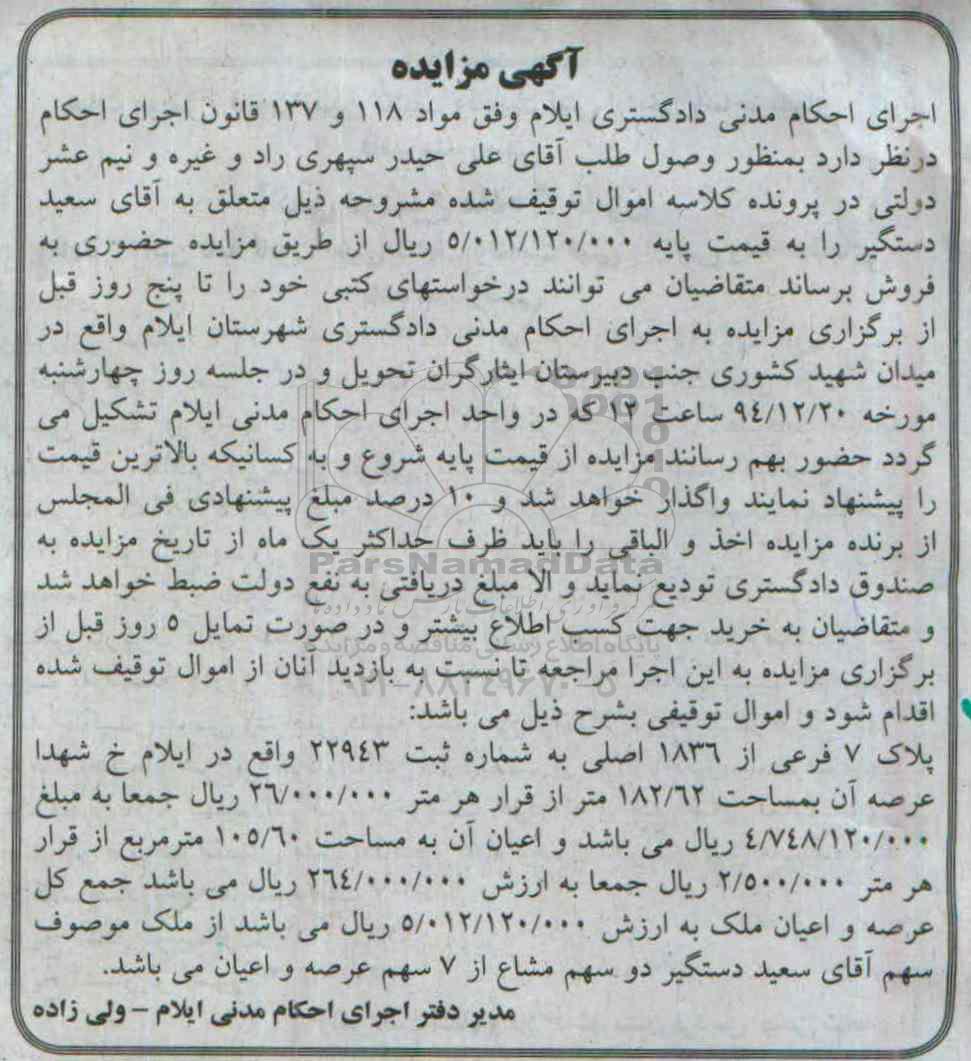 آگهی مزایده
اجرای احکام مدنی دادگستری ایلام وفق مواد ۱۱۸ و ۱۳۷ قانون اجرای احکام
درنظر دارد بمنظور وصول طلب آقای علی حیدر سپهری راد و غیره و نیم عشر
دولتی در پرونده کلاسه اموال توقیف شده مشروحه ذیل متعلق به آقای سعید
دستگیر را به قیمت پایه ۵/۰۱۲/۱۲۰/۰۰۰ ریال از طریق مزایده حضوری به
فروش برساند متقاضیان می توانند درخواستهای کتبی خود را تا پنج روز قبل
از برگزاری مزایده به اجرای احکام مدنی دادگستری شهرستان ایلام واقع در
میدان شهید کشوری جنب دبیرستان ایثارگران تحویل و در جلسه روز چهارشنبه
مورخه ۹۴/۱۲/۲۰ ساعت ۱۲ که در واحد اجرای احکام مدنی ایلام تشکیل می
گردد حضور بهم رسانند مزایده از قیمت پایه شروع و به کسانیکه بالاترین قیمت
را پیشنهاد نمایند واگذار خواهد شد و ۱۰ درصد مبلغ پیشنهادی فی المجلس
از برنده مزایده اخذ و الباقی را باید ظرف حداکثر یک ماه از تاریخ مزایده به
ParsNamadData
صندوق دادگستری تودیع نماید و الا مبلغ دریافتی به نفع دولت ضبط خواهد شد
و متقاضیان به خرید جهت کسب اطلاع بیشتر و در صورت تمایل ۵ روز قبل از
پایگاه اطلاع رسانی مناقصه و مزایده
برگزاری مزایده به این اجرا مراجعه تا نسبت به بازدید آنان از اموال توقیف شده
اقدام شود و اموال توقیفی بشرح ذیل می باشد:
پلاک ۷ فرعی از ۱۸۳۶ اصلی به شماره ثبت ۲۲۹۴۳ واقع در ایلام خ شهدا
عرصه آن بمساحت ۱۸۲/۶۲ متر از قرار هر متر ۲۶/۰۰۰/۰۰۰ ریال جمعا به مبلغ
۴/۷۴۸/۱۲۰/۰۰۰ ریال می باشد و اعیان آن به مساحت ۱۰۵/۶۰ مترمربع از قرار
هر متر ۲/۵۰۰/۰۰۰ ریال جمعا به ارزش ۲۶۴/۰۰۰/۰۰۰ ریال می باشد جمع کل
عرصه و اعیان ملک به ارزش ۵/۰۱۲/۱۲۰/۰۰۰ ریال می باشد از ملک موصوف
سهم آقای سعید دستگیر دو سهم مشاع از ۷ سهم عرصه و اعیان می باشد.
مدیر دفتر اجرای احکام مدنی ایلام - ولی زاده